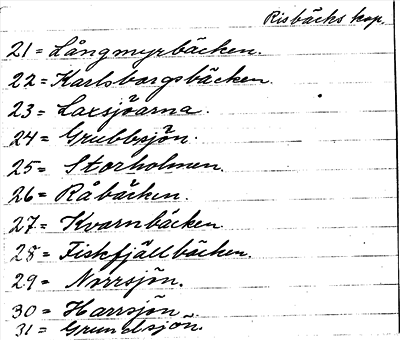 Risbäcks kap.
21 = Långmyrbäcken.
22 = Karlsborgsbäcken.
23 = Laxsjöarna.
24 = Grubbsjön.
25 = Storholmen.
26 = Råbäcken.
27 = Kvarnbäcken
28 = Fiskfjällbäcken.
29 = Norrsjön.
30 = Harrsjön
31 = Grundsjön.